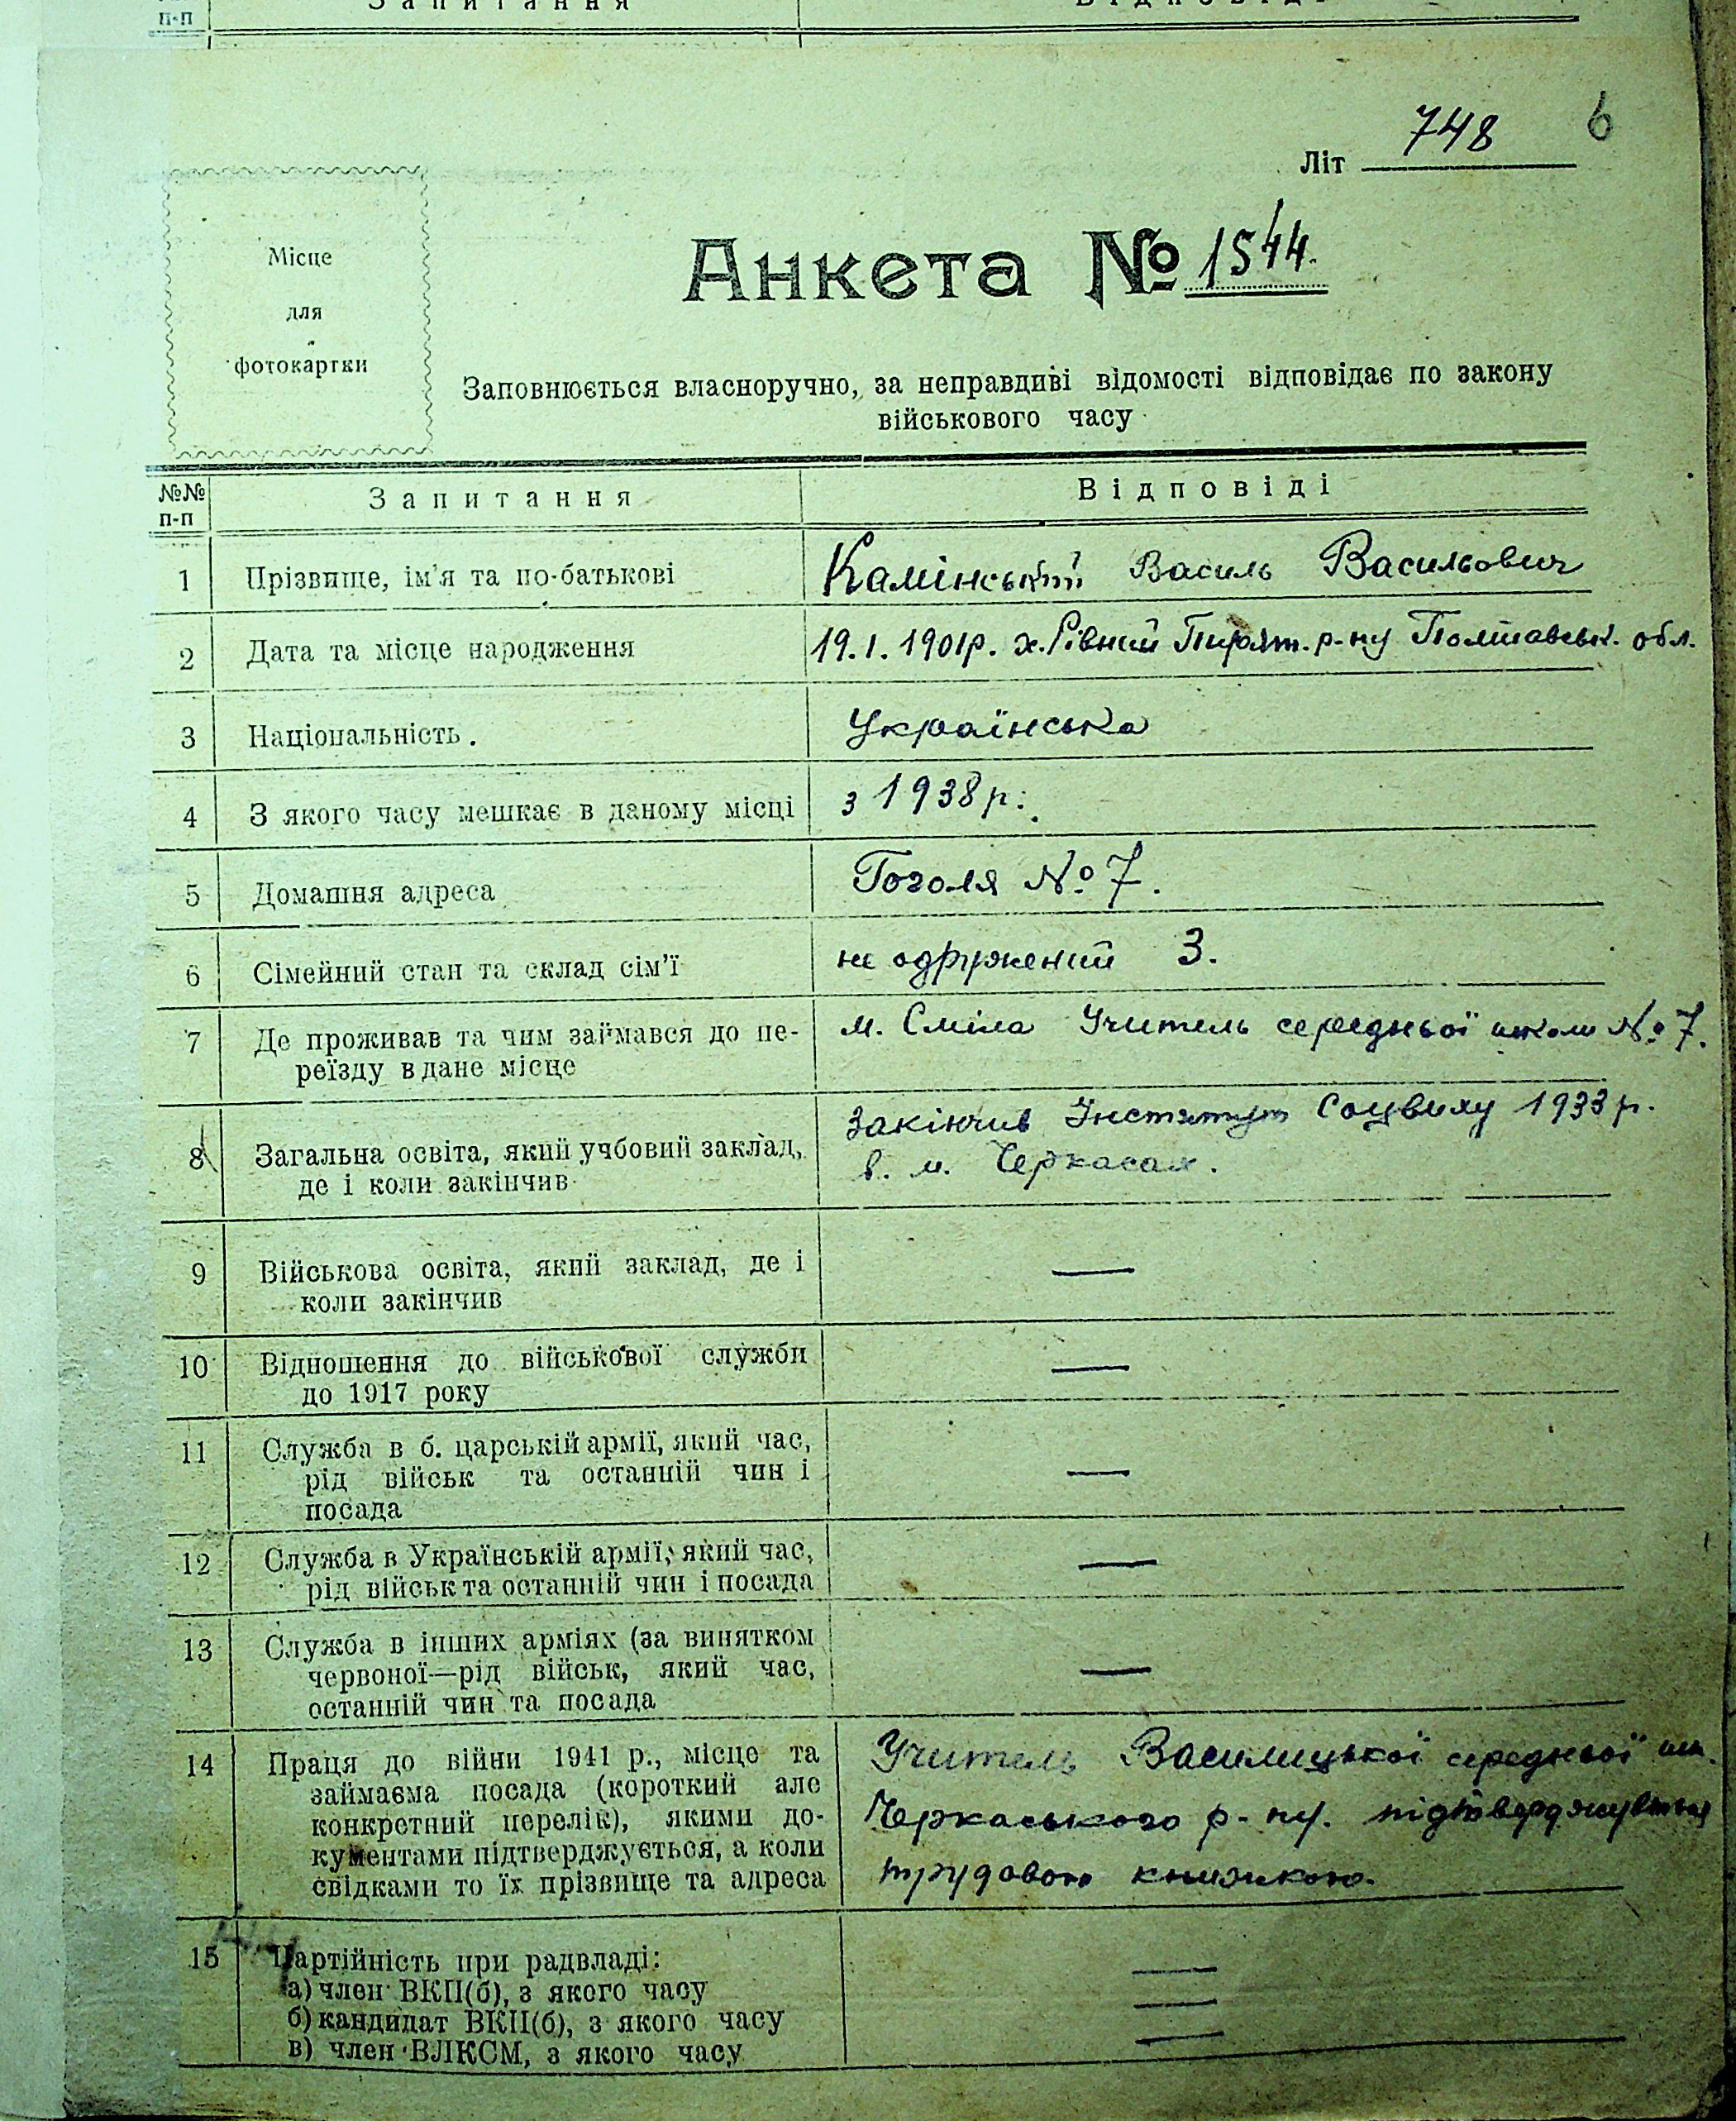 п-п
Запитання
Відповіді
Літ 748
6
Місце
для
фотокартки
Анкета № 1544.
Заповнюється власноручно, за неправдиві відомості відповідає по закону
військового часу
№№
п-п
Запитання
Відповіді
1
Прізвище, ім'я та по-батькові
Камінський Василь Васильович
2
Дата та місце народження
19.1.1901р. х.Рівний Пирят. р-ну Полтавськ. обл.
3
Національність.
Українська
4
З якого часу мешкає в даному місці
з 1938 р.
5
Домашня адреса
Гоголя № 7.
6
Сімейний стан та склад сім'ї
не одружений 3.
7
Де проживав та чим займався до пе-
реїзду в дане місце
м. Сміла Учитель середньої школи № 7.
8
Загальна освіта, який учбовий заклад,
де і коли закінчив
Закінчив Інститут Соцвиху 1933 р.
в. м. Черкасах.
9
Військова освіта, який заклад, де і
коли закінчив
—
10
Відношення до військової служби
до 1917 року
—
11
Служба в б. царській армії, який час,
рід військ та останній чин і
посада
—
12
Служба в Українській армії, який час,
рід військ та останній чин і посада
—
13
Служба в інших арміях (за винятком
червоної—рід військ, який час,
останній чин та посада
—
14
Праця до війни 1941 р., місце та
займаєма посада (короткий але
конкретний перелік), якими до-
кументами підтверджується, а коли
свідками то їх прізвище та адреса
Учитель Василицької середньої шк.
Черкаського р-ну. підтверджується
трудовою книжкою.
15
Партійність при радвладі:
а) член ВКП(б), з якого часу
—
б) кандидат ВКП(б), з якого часу
—
в) член ВЛКСМ, з якого часу
—